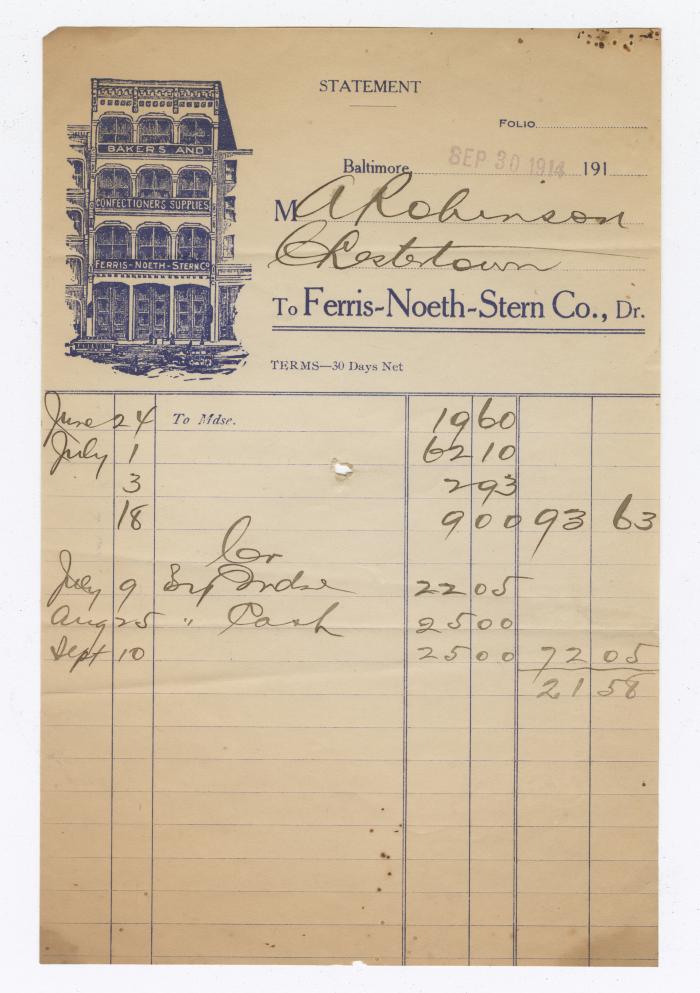 STATEMENT
FOLIO
BAKERS AND
CONFECTIONERS SUPPLIES
FERRIS-NOETH-STERN CO
Baltimore, SEP 30 1914 191
M A Robinson
Chestertown
To Ferris-Noeth-Stern Co., Dr.
TERMS—30 Days Net
June 24 To Mdse. 19 60
July 1 62 10
3 2 93
18 9 00 93 63
Cr
July 9 By Mdse 22 05
Aug 25 " Cash 25 00
Sept 10 25 00 72 05
21 58